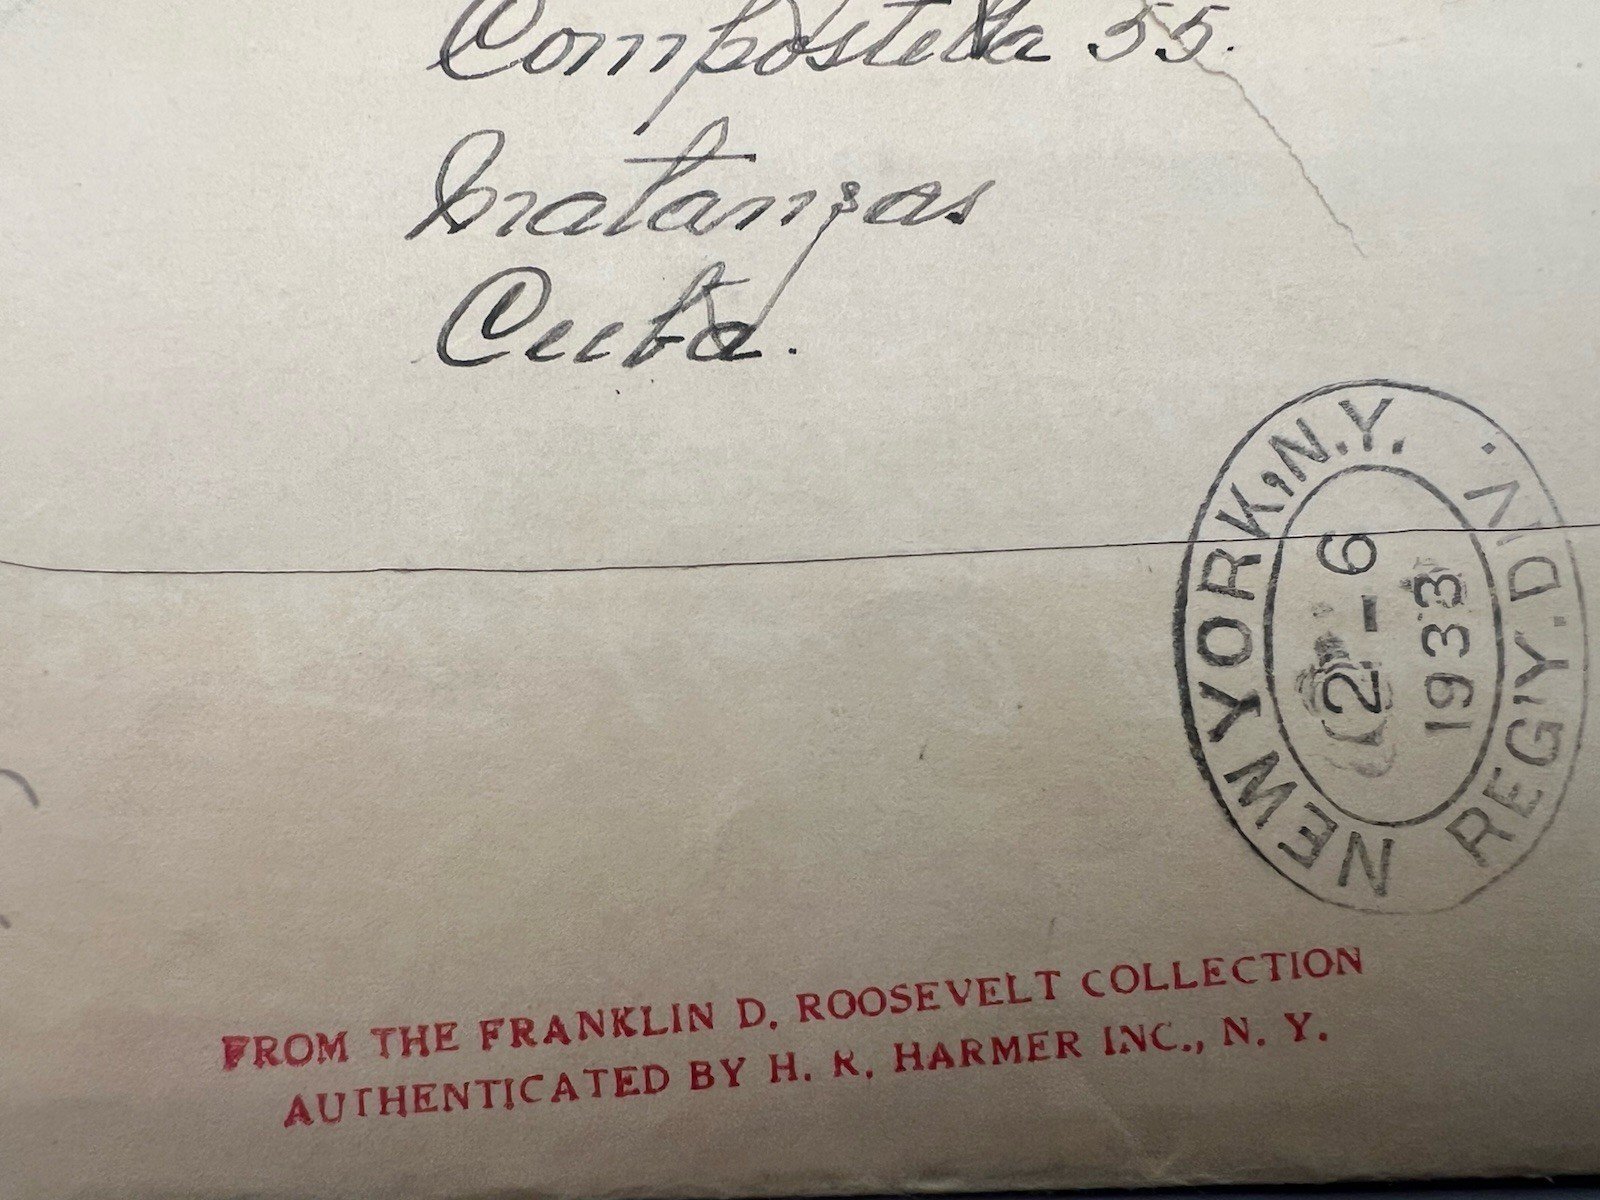 Compostela 55.
Matanzas
Cuba.
NEW YORK, N.Y.
REG'Y. DIV.
12-6
1933
FROM THE FRANKLIN D. ROOSEVELT COLLECTION
AUTHENTICATED BY H. R. HARMER INC., N. Y.